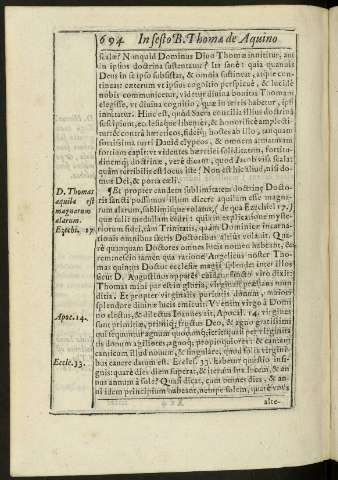 694 In festo B. Thomæ de Aquino
scalæ? Nonquid Dominus Diuo Thomæ innititur, aut
in ipsius doctrina sustentatur? Ita sanè: quia quamuis
Deus in se ipso subsistat, & omnia sustineat, atque con-
tineat; cæterum vt ipsius cognitio perspicuè, & lucidè
nobis communicetur, videtur diuina bonitas Thomam
elegisse, vt diuina cognitio, quæ in terris habetur, ipsi
innitatur. Hinc est, quod Sacra concilia illius doctrinã
suscipiunt, ecclesiaque
tur: & contrà hæreticos, fideique hostes ab illo, tanquam
omni
omnia capiunt
dinemque doctrinæ, verè dicant, quod Iacob visa scala:
quàm terribilis est locus iste! Non est hic aliud, nisi do-
mus Dei, & porta cæli.
D. Thomas
aquila est
magnarum
alarum.
Ezechi. 17.
¶ Et propter eandem sublimitatem doctrinæ Docto-
ris sancti possumus illum dicere aquilam esse magna-
rum alarum, sublimique volatu, (de qua Ezechiel 17.)
quæ tulit medullam cedri: quia in explicatione myste-
riorum fidei, tàm Trinitatis, quàm Dominicæ incarna-
tionis omnibus cæteris Doctoribus altiùs volauit. Qua-
re quamquam Doctores omnes lucis nomen habeant, &
Thomas quintus Doctor ecclesiæ magis splendet inter illos
sicut D. Augustinus
Thomas mini par est in gloria, virginali præstans mun
ditia. Et propter virginalis puritatis donum, maiori
splendore diuinæ lucis emicuit. Vt enim virgo à Domi
Apoc. 14.
no electus, & dilectus Ioannes ait, Apocal. 14. virgines
sunt primitiæ, primique fructus Deo, & agno gratissimi
qui sequuntur agnum quocumque ierit: quia per virginita-
tis donum agiliores, agnoque propinquiores: & cantant
canticum illud nouum, & singulare, quod solis virgini-
Eccle. 33.
bus cantare datum est. Ecclesi. 33. habetur quæstio insi-
gnis: quarè dies diem superat, & iterum lux lucem, & an-
nus annum à sole? Quasi dicat, cum omnes dies, & an-
ni idem principium habeant, nempè solem, quarè vnus
alte-